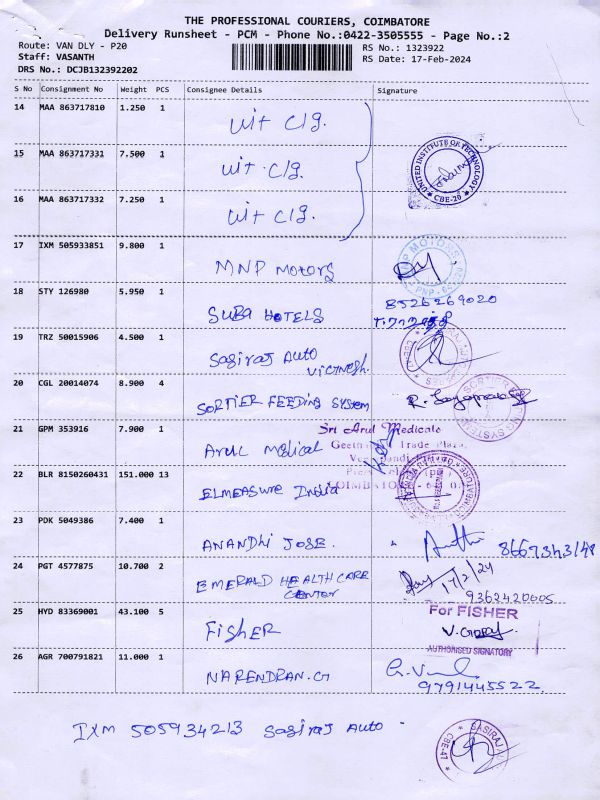 THE PROFESSIONAL COURIERS, COIMBATORE
Delivery Runsheet - PCM - Phone No.:0422-3505555 - Page No.:2
Route: VAN DLY - P20
RS No.: 1323922
Staff: VASANTH
RS Date: 17-Feb-2024
DRS No.: DCJB132392202
S No Consignment No Weight PCS Consignee Details Signature
14 MAA 863717810 1.250 1
uit clg.
15 MAA 863717331 7.500 1
uit clg.
UNITED INSTITUTE OF TECHNOLOGY
CBE-20
16 MAA 863717332 7.250 1
uit clg.
17 IXM 505933851 9.800 1
MNP Motors
18 STY 126980 5.950 1
8526269020
SUBA HOTELS
19 TRZ 50015906 4.500 1
Sagiraj Auto
Vignesh.
20 CGL 20014074 8.900 4
SORTIER FEEDING SYSTEM
21 GPM 353916 7.900 1
Sri Arul Medicals
Trade Plaza,
Arul Medical
22 BLR 8150260431 151.000 13
ELMEASURE India
23 PDK 5049386 7.400 1
ANANDHI JOSE.
24 PGT 4577875 10.700 2
EMERALD HEALTH CARE
Center
17/2/24
9362420005
25 HYD 83369001 43.100 5
For FISHER
Fisher
AUTHORISED SIGNATORY
26 AGR 700791821 11.000 1
NARENDRAN.G
9791445522
IXM 505934213 Sagiraj Auto
SASIRAJ
CBE-47